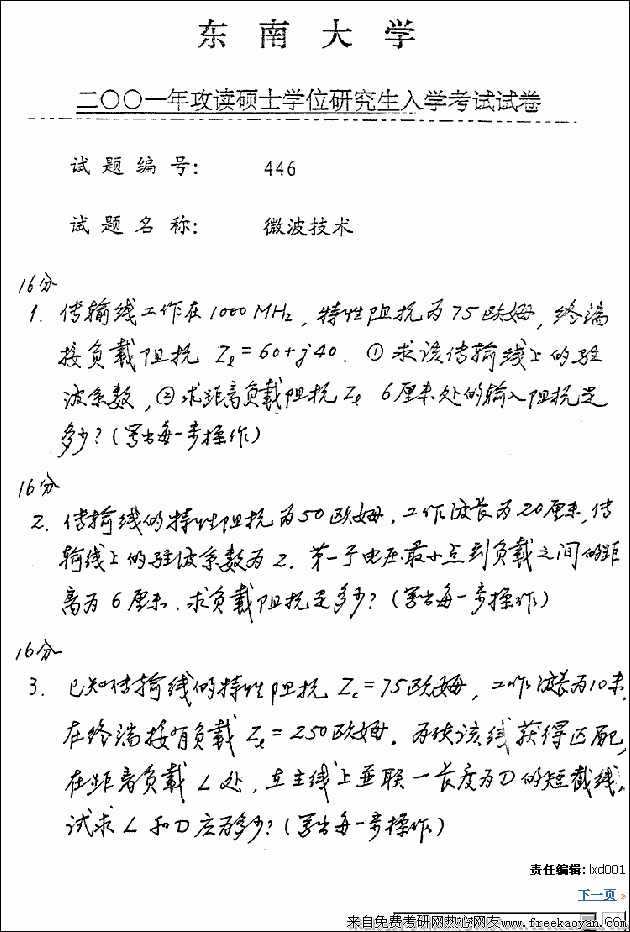 东南大学
二〇〇一年攻读硕士学位研究生入学考试试卷
试题编号: 446
试题名称: 微波技术
16分
1. 传输线工作在1000MHz, 特性阻抗为75欧姆, 终端
接负载阻抗 Zℓ=60+j40. ①求该传输线上的驻
波系数, ②求距离负载阻抗Zℓ 6厘米处的输入阻抗是
多少?(写出每一步操作)
16分
2. 传输线的特性阻抗为50欧姆. 工作波长为20厘米, 传
输线上的驻波系数为2. 第一个电压最小点到负载之间的距
离为6厘米. 求负载阻抗是多少?(写出每一步操作)
16分
3. 已知传输线的特性阻抗 Zc=75欧姆, 工作波长为10米,
在终端接有负载 Zℓ=250欧姆. 为使该线获得匹配,
在距离负载 L 处, 在主线上并联一长度为D的短截线.
试求L和D应为多少?(写出每一步操作)
责任编辑: lxd001
下一页 »
来自免费考研网热心网友www.freekaoyan.com